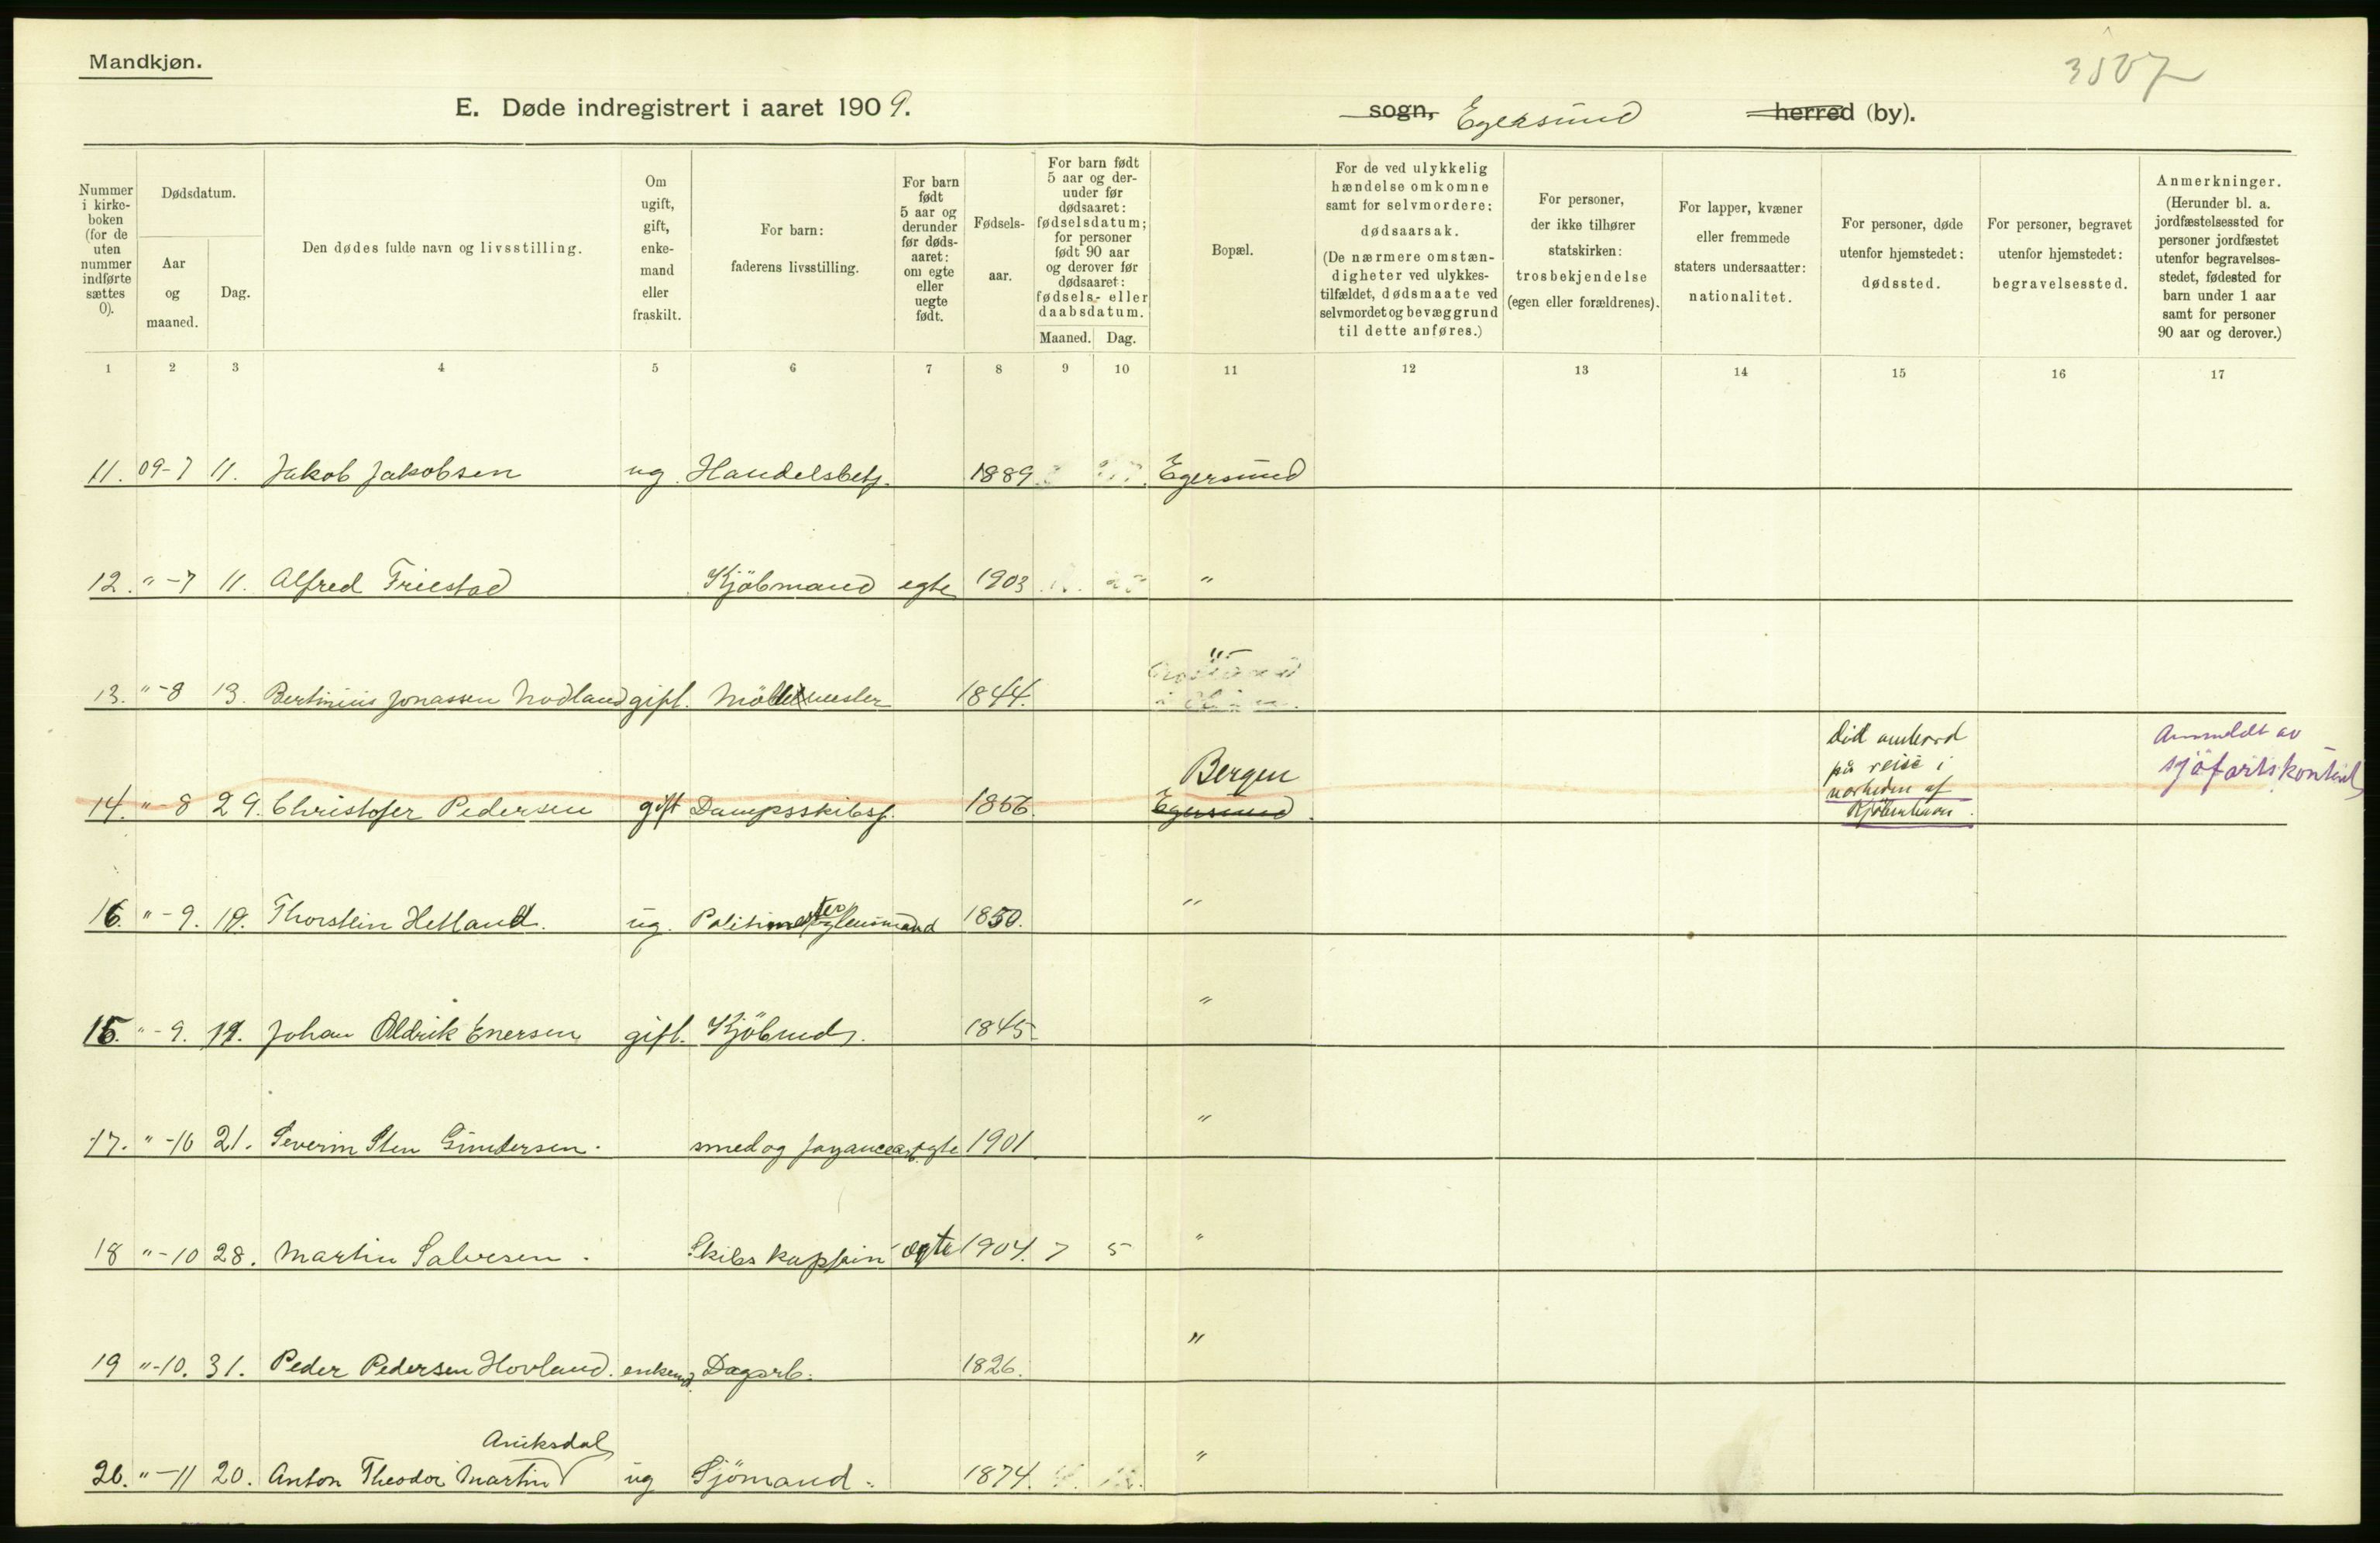 Mandkjøn.
3507
E. Døde indregistrert i aaret 1909.
sogn, Egersund herred (by).
Nummer i kirkeboken (for de uten nummer indførte sættes 0).
Dødsdatum.
Aar og maaned.
Dag.
Den dødes fulde navn og livsstilling.
Om ugift, gift, enkemand eller fraskilt.
For barn: faderens livsstilling.
For barn født 5 aar og derunder før dødsaaret: om egte eller uegte født.
Fødselsaar.
For barn født 5 aar og derunder før dødsaaret: fødselsdatum; for personer født 90 aar og derover før dødsaaret: fødsels- eller daabsdatum.
Maaned. Dag.
Bopæl.
For de ved ulykkelig hændelse omkomne samt for selvmordere: dødsaarsak. (De nærmere omstændigheter ved ulykkestilfældet, dødsmaate ved selvmordet og bevæggrund til dette anføres.)
For personer, der ikke tilhører statskirken: trosbekjendelse (egen eller forældrenes).
For lapper, kvæner eller fremmede staters undersaatter: nationalitet.
For personer, døde utenfor hjemstedet: dødssted.
For personer, begravet utenfor hjemstedet: begravelsessted.
Anmerkninger. (Herunder bl. a. jordfæstelsessted for personer jordfæstet utenfor begravelsesstedet, fødested for barn under 1 aar samt for personer 90 aar og derover.)
1 2 3 4 5 6 7 8 9 10 11 12 13 14 15 16 17
11. 09-7 11. Jakob Jakobsen ug. Handelsbetj. 1889 Egersund
12. "-7 11. Alfred Friestad Kjöbmand egte 1903 "
13. "-8 13. Bertinius Jonassen Nodland gift. Möllemester 1844. "
14. "-8 29. Christofer Pedersen gift Dampsskibsf. 1856. Bergen Egersund
Död ombord
på reise i
nærheden af
Kjöbenhavn.
Anmeldt av
sjöfartskontoret
16. "-9. 19. Thorstein Hetland. ug. Politimester og lensmand 1850. "
15. "-9. 19. Johan Oldrik Enersen gift. Kjöbmd. 1845 "
17. "-10 21. Severin Sten Gundersen. smed og fayancearb. egte 1901. "
18 "-10 28. Martin Salvesen. Skibskaptein egte 1904. 7 5 "
19 "-10. 31. Peder Pedersen Hovland. enkem. Dagarb. 1826. "
Aniksdal
20. "-11 20. Anton Theodor Martin ug Sjömand. 1874. "